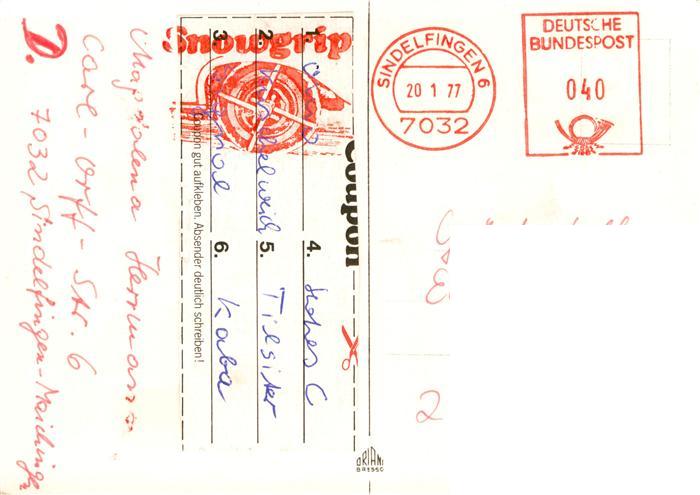 Magdalena Herrmann
Carl-Orff-Str. 6
D. 7032 Sindelfingen-Maichingen
Snowgrip
Coupon
1.
2.
3.
4. Hohes C
5. Tilsiter
6. Kaba
Coupon gut aufkleben. Absender deutlich schreiben!
SINDELFINGEN 6
20 1 77
7032
DEUTSCHE
BUNDESPOST
040
2